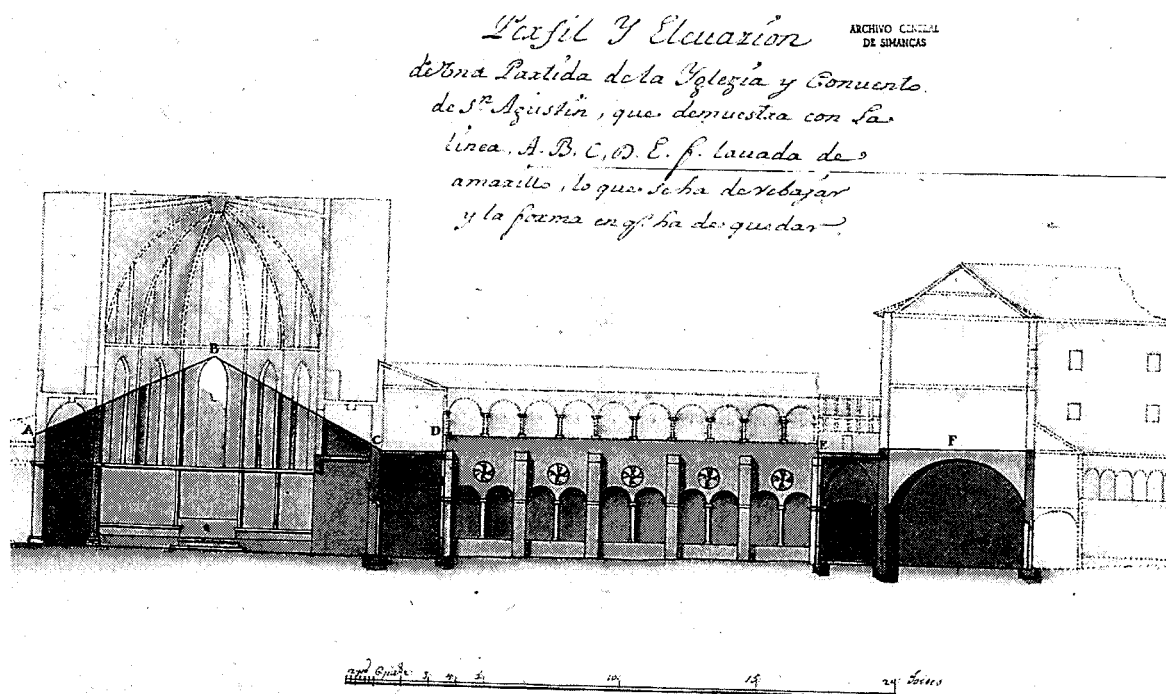 Perfil Y Eleuazion
ARCHIVO GENERAL
DE SIMANCAS
de Vna Partida de la Yglezia y Conuento
de Sn. Agustin, que demuestra con La
linea, A. B. C, D. E. f. lauada de
amarillo, lo que se ha de rebajar
y la forma en q.e ha de quedar
B
A
C
D
E
F
10
15